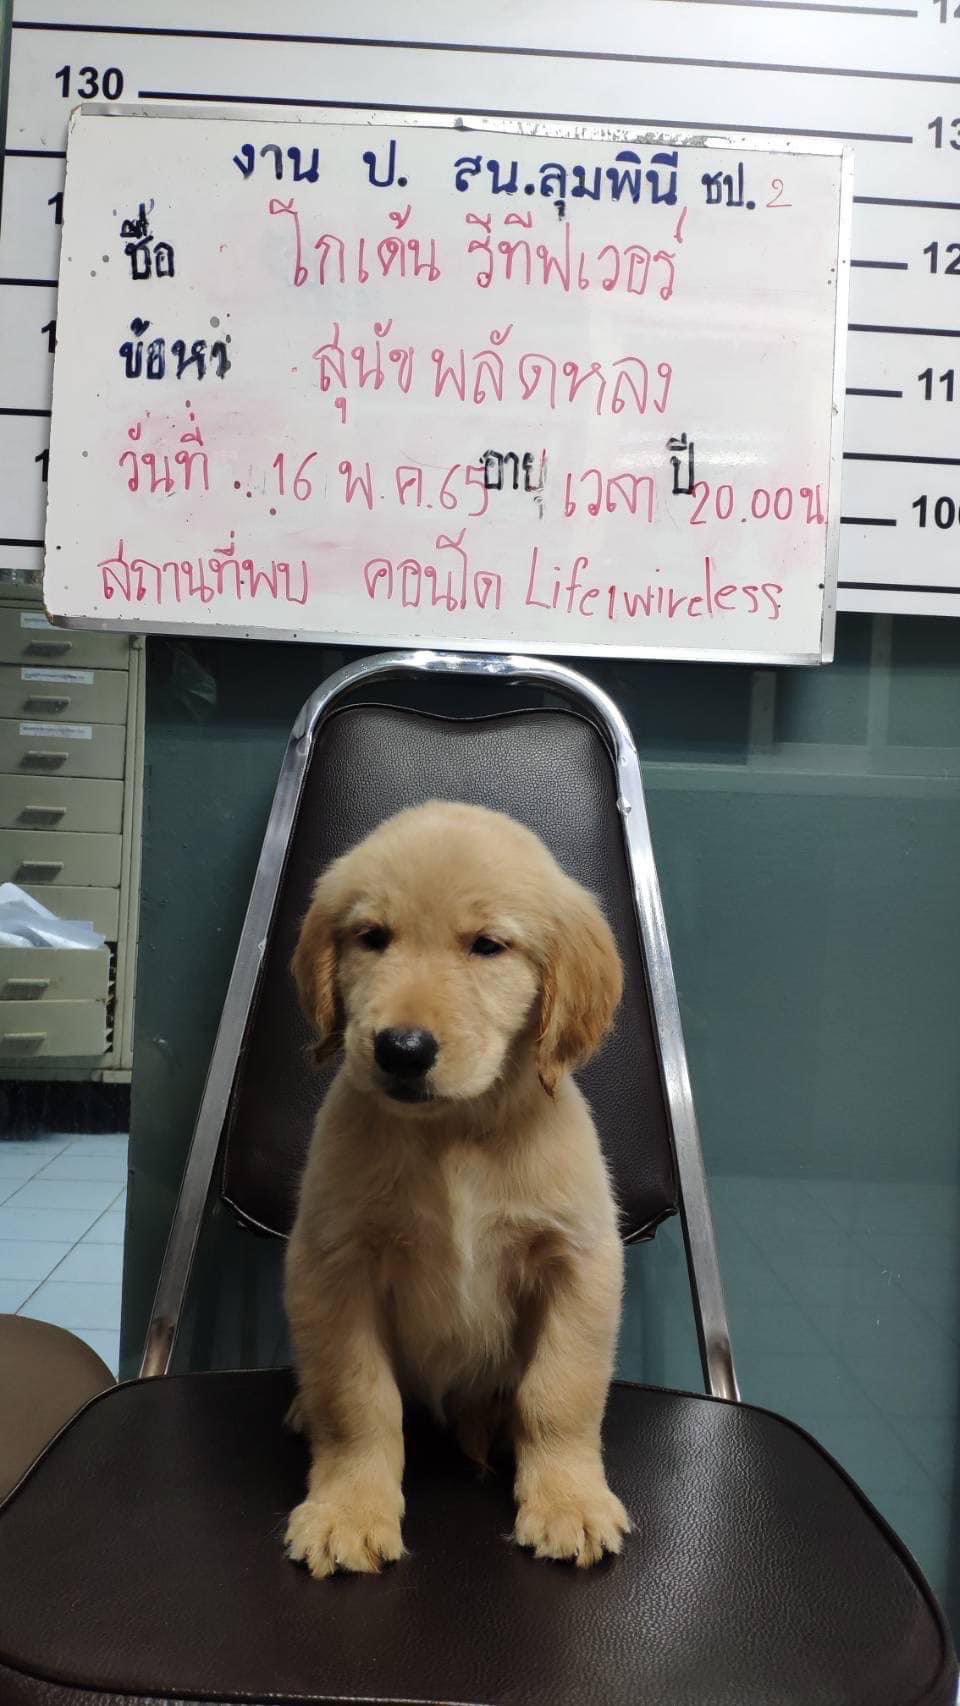 130
งาน ป. สน.ลุมพินี ชป. 2
ชื่อ โกเด้น รีทีฟเวอร์
ข้อหา สุนัขพลัดหลง
วันที่ 16 พ.ค.65 อายุ เวลา ปี 20.00น
สถานที่พบ คอนโด Life1wireless